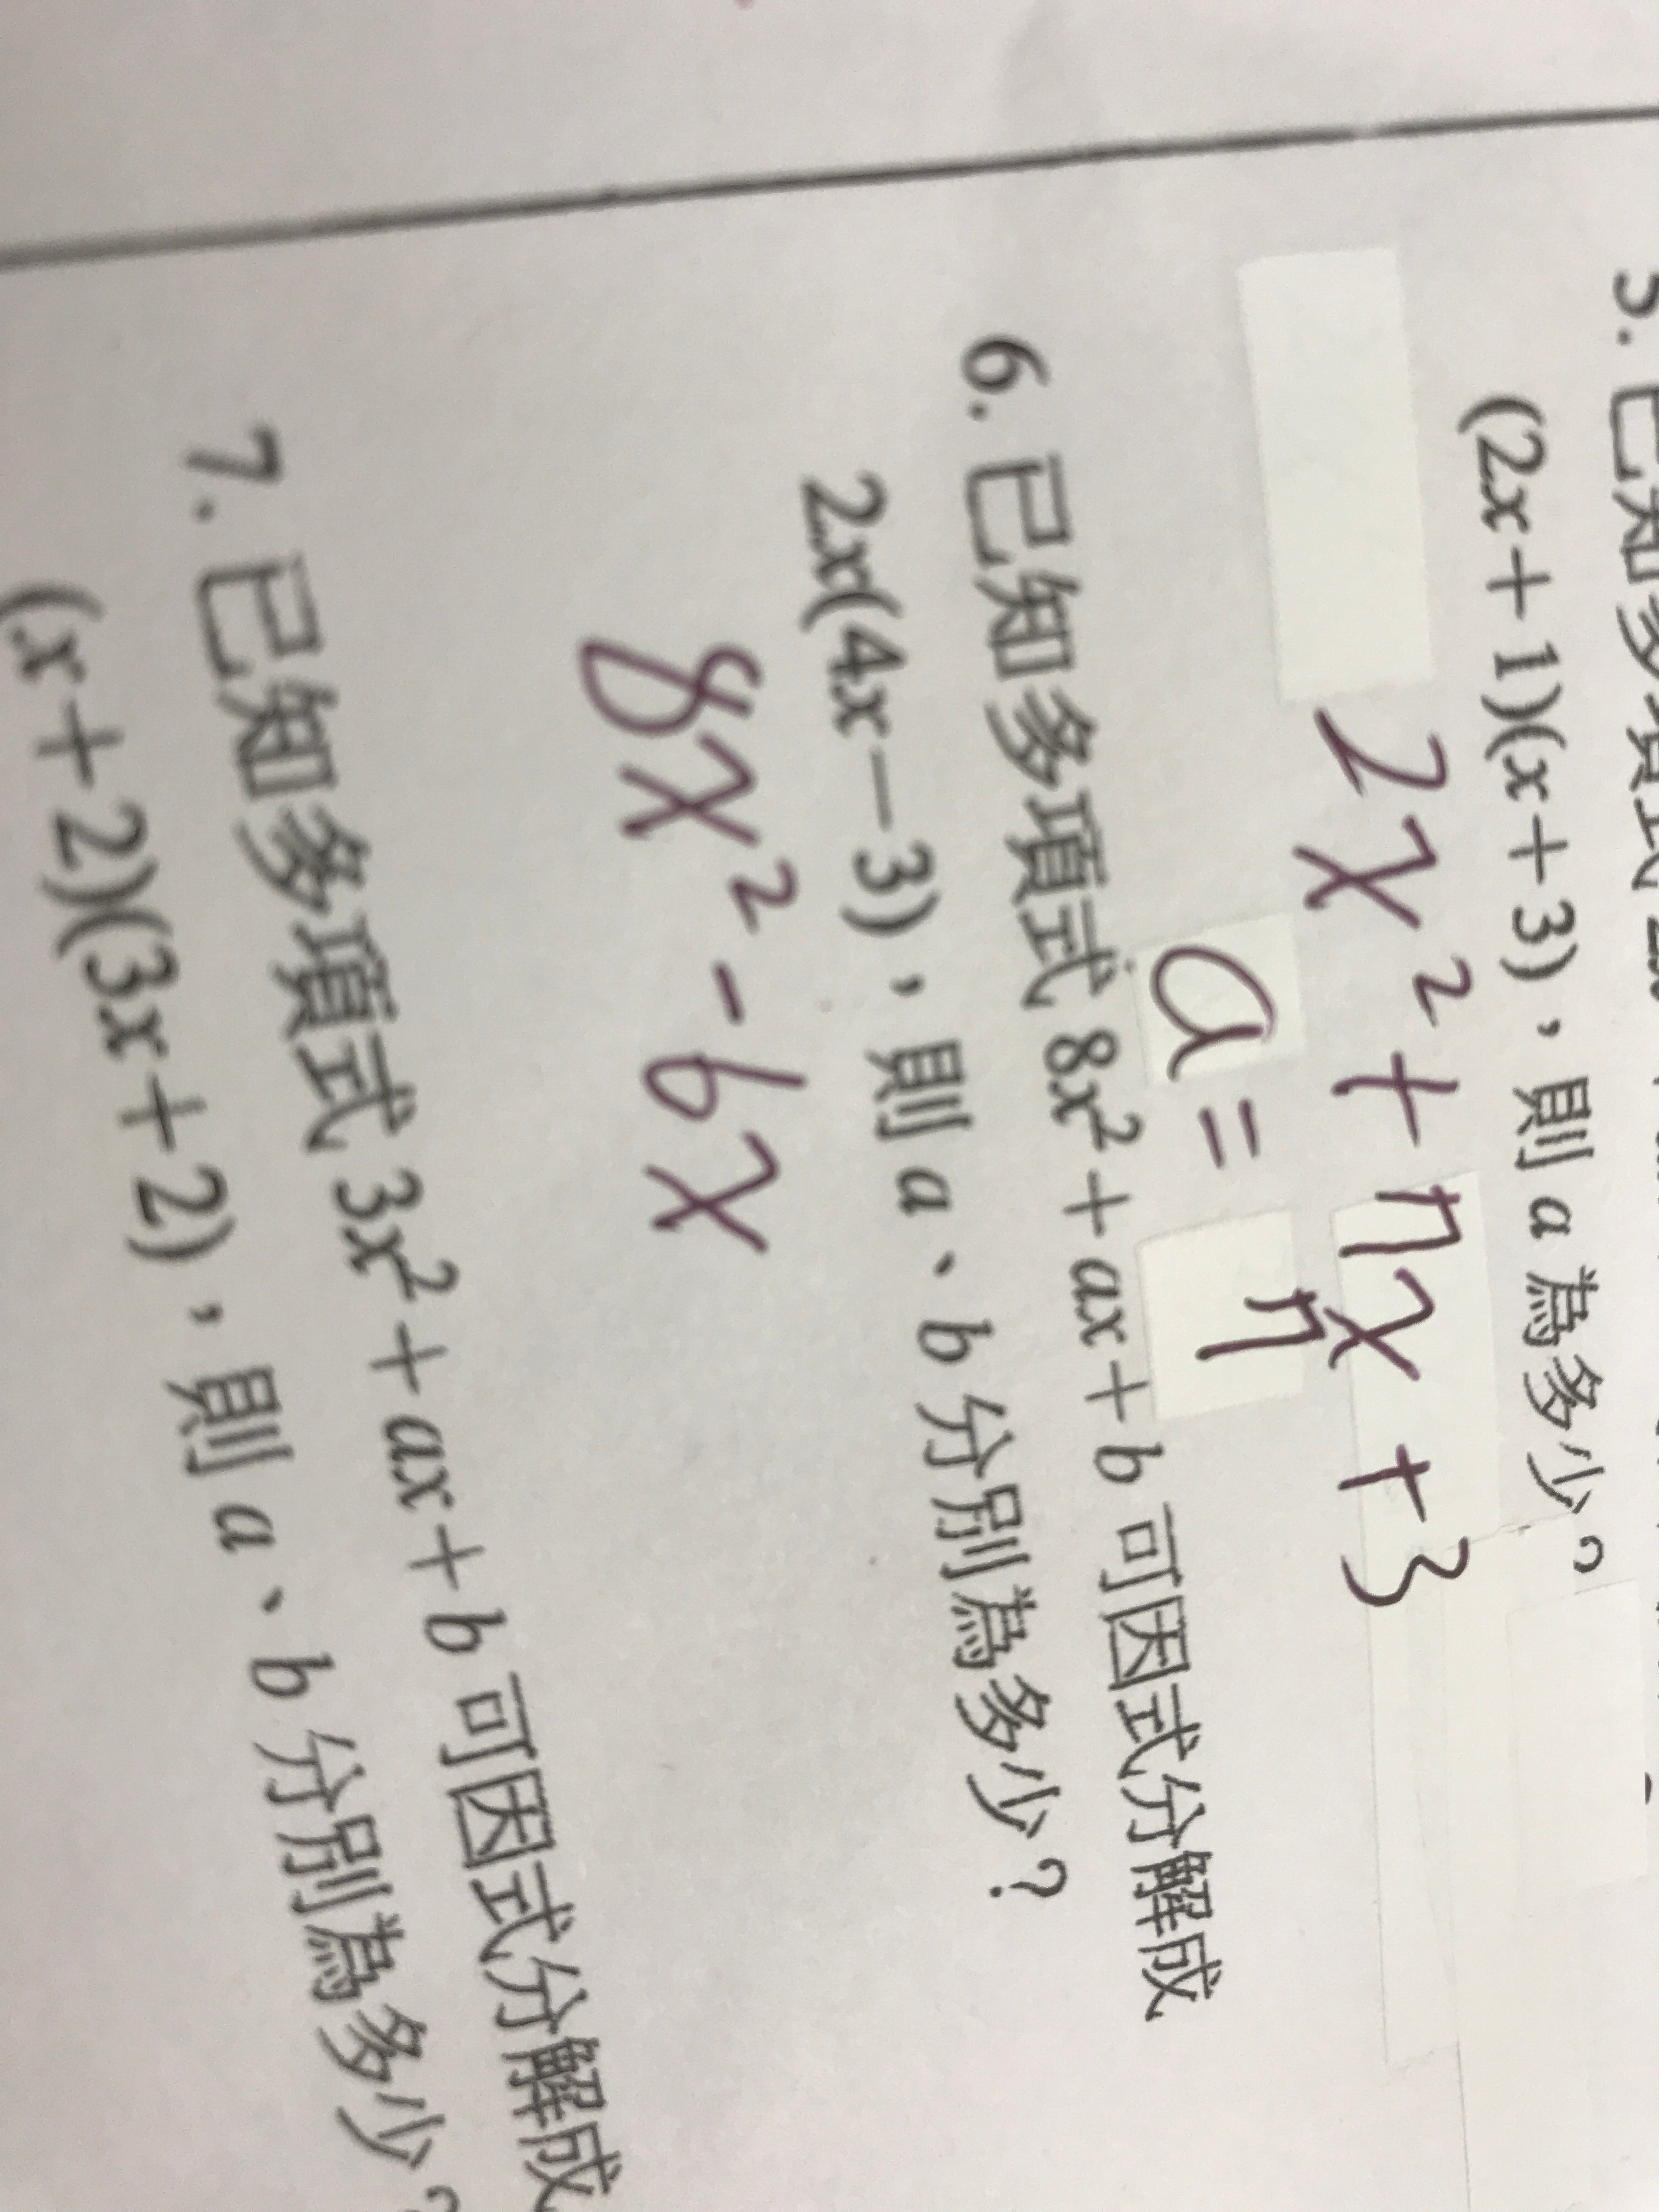 5. 已知多項式
(2x+1)(x+3)，則 a 為多少？
2x²+7x+3
a=7
6. 已知多項式 8x²+ax+b 可因式分解成
2x(4x−3)，則 a、b 分別為多少？
8x²-6x
7. 已知多項式 3x²+ax+b 可因式分解成
(x+2)(3x+2)，則 a、b 分別為多少？